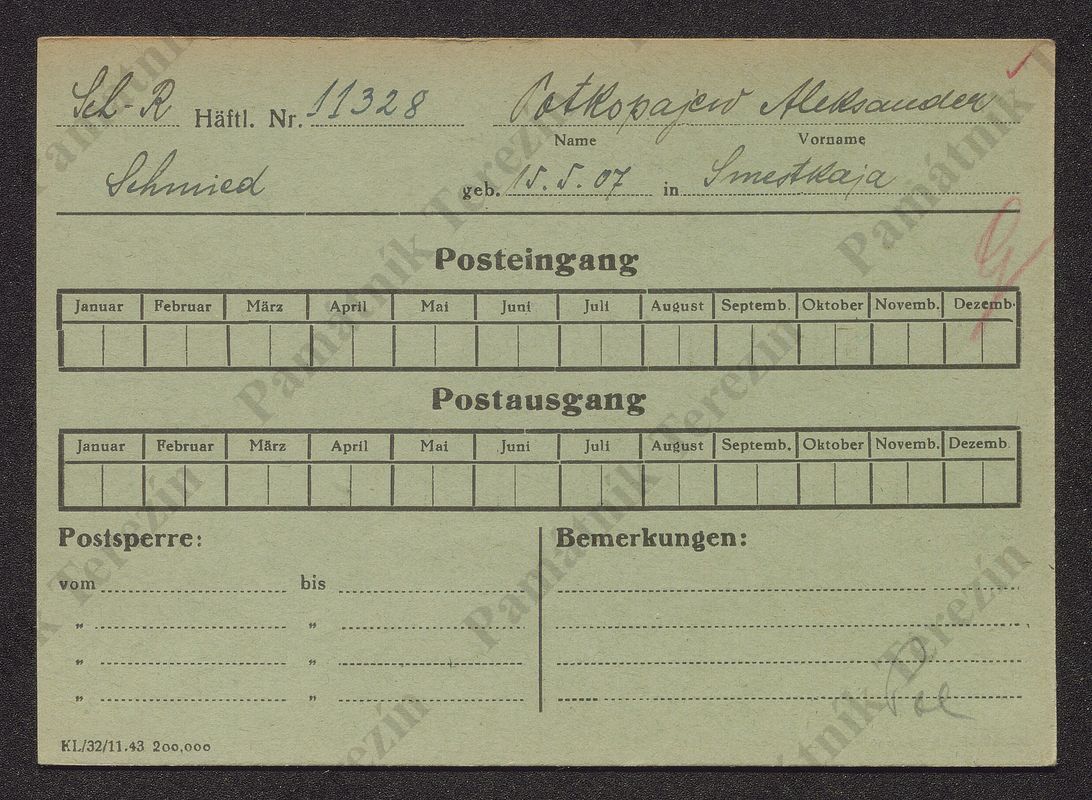 Sch-R Häftl. Nr. 11328 Potkopajew Aleksander
Name Vorname
Schmied geb. 15.5.07 in Smestkaja
Posteingang
Januar Februar März April Mai Juni Juli August Septemb. Oktober Novemb. Dezemb.
Postausgang
Januar Februar März April Mai Juni Juli August Septemb. Oktober Novemb. Dezemb.
Postsperre: Bemerkungen:
vom bis
„ „
„ „
„ „
KL/32/11.43 200,000
Památník Terezín